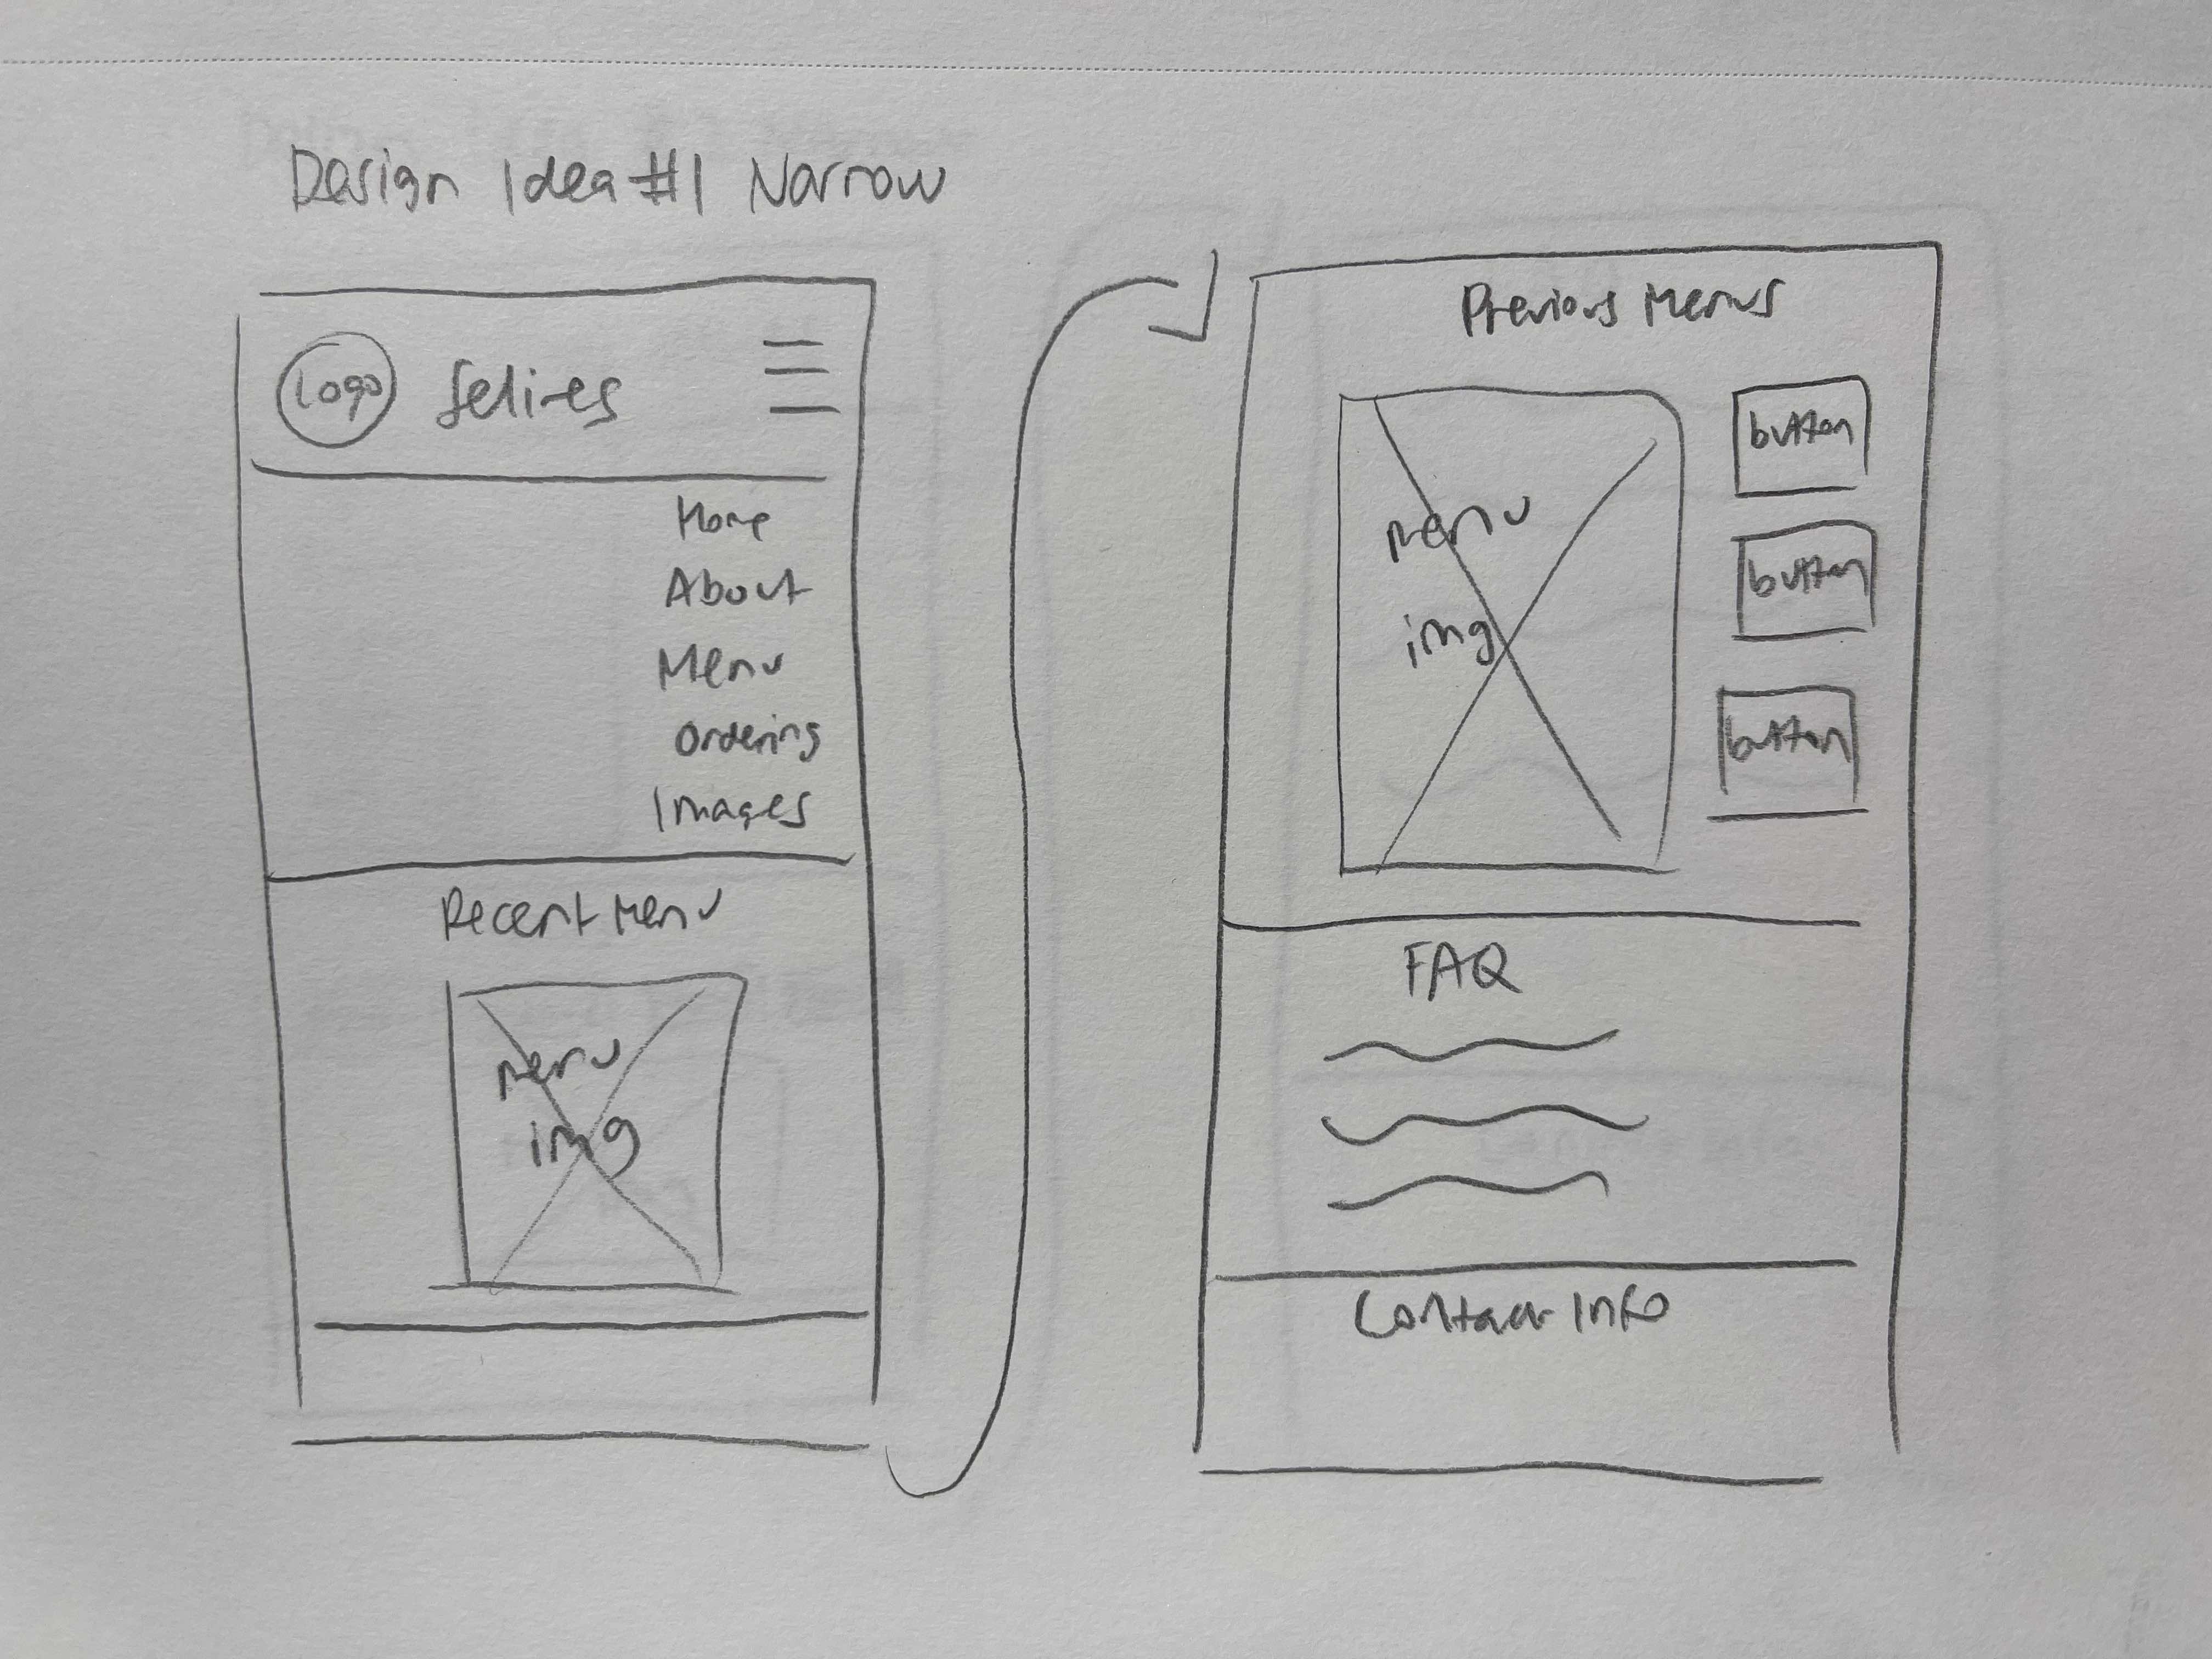 Design Idea #1 Narrow
Logo
Home
About
Menu
Ordering
Images
Recent Menu
Menu
img
Previous Menus
Menu
img
button
button
button
FAQ
Contact Info